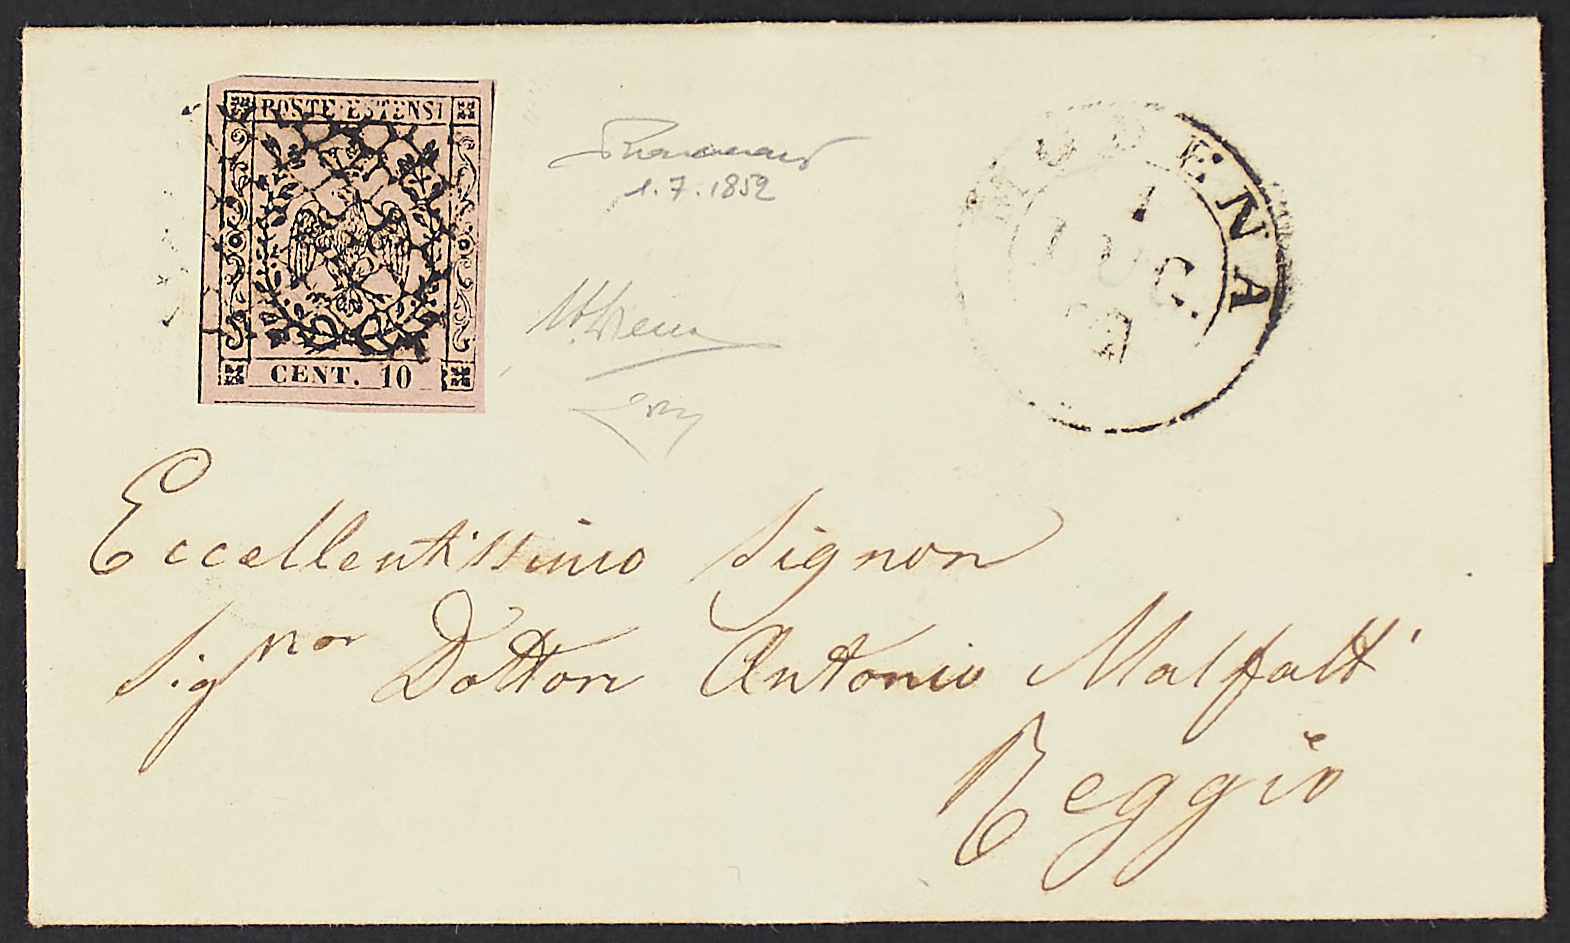 POSTE ESTENSI
CENT. 10
1.7.1852
MODENA
1
LUG.
Eccellentissimo Signor
Sig.nor Dottor Antonio Malfatti
Reggio